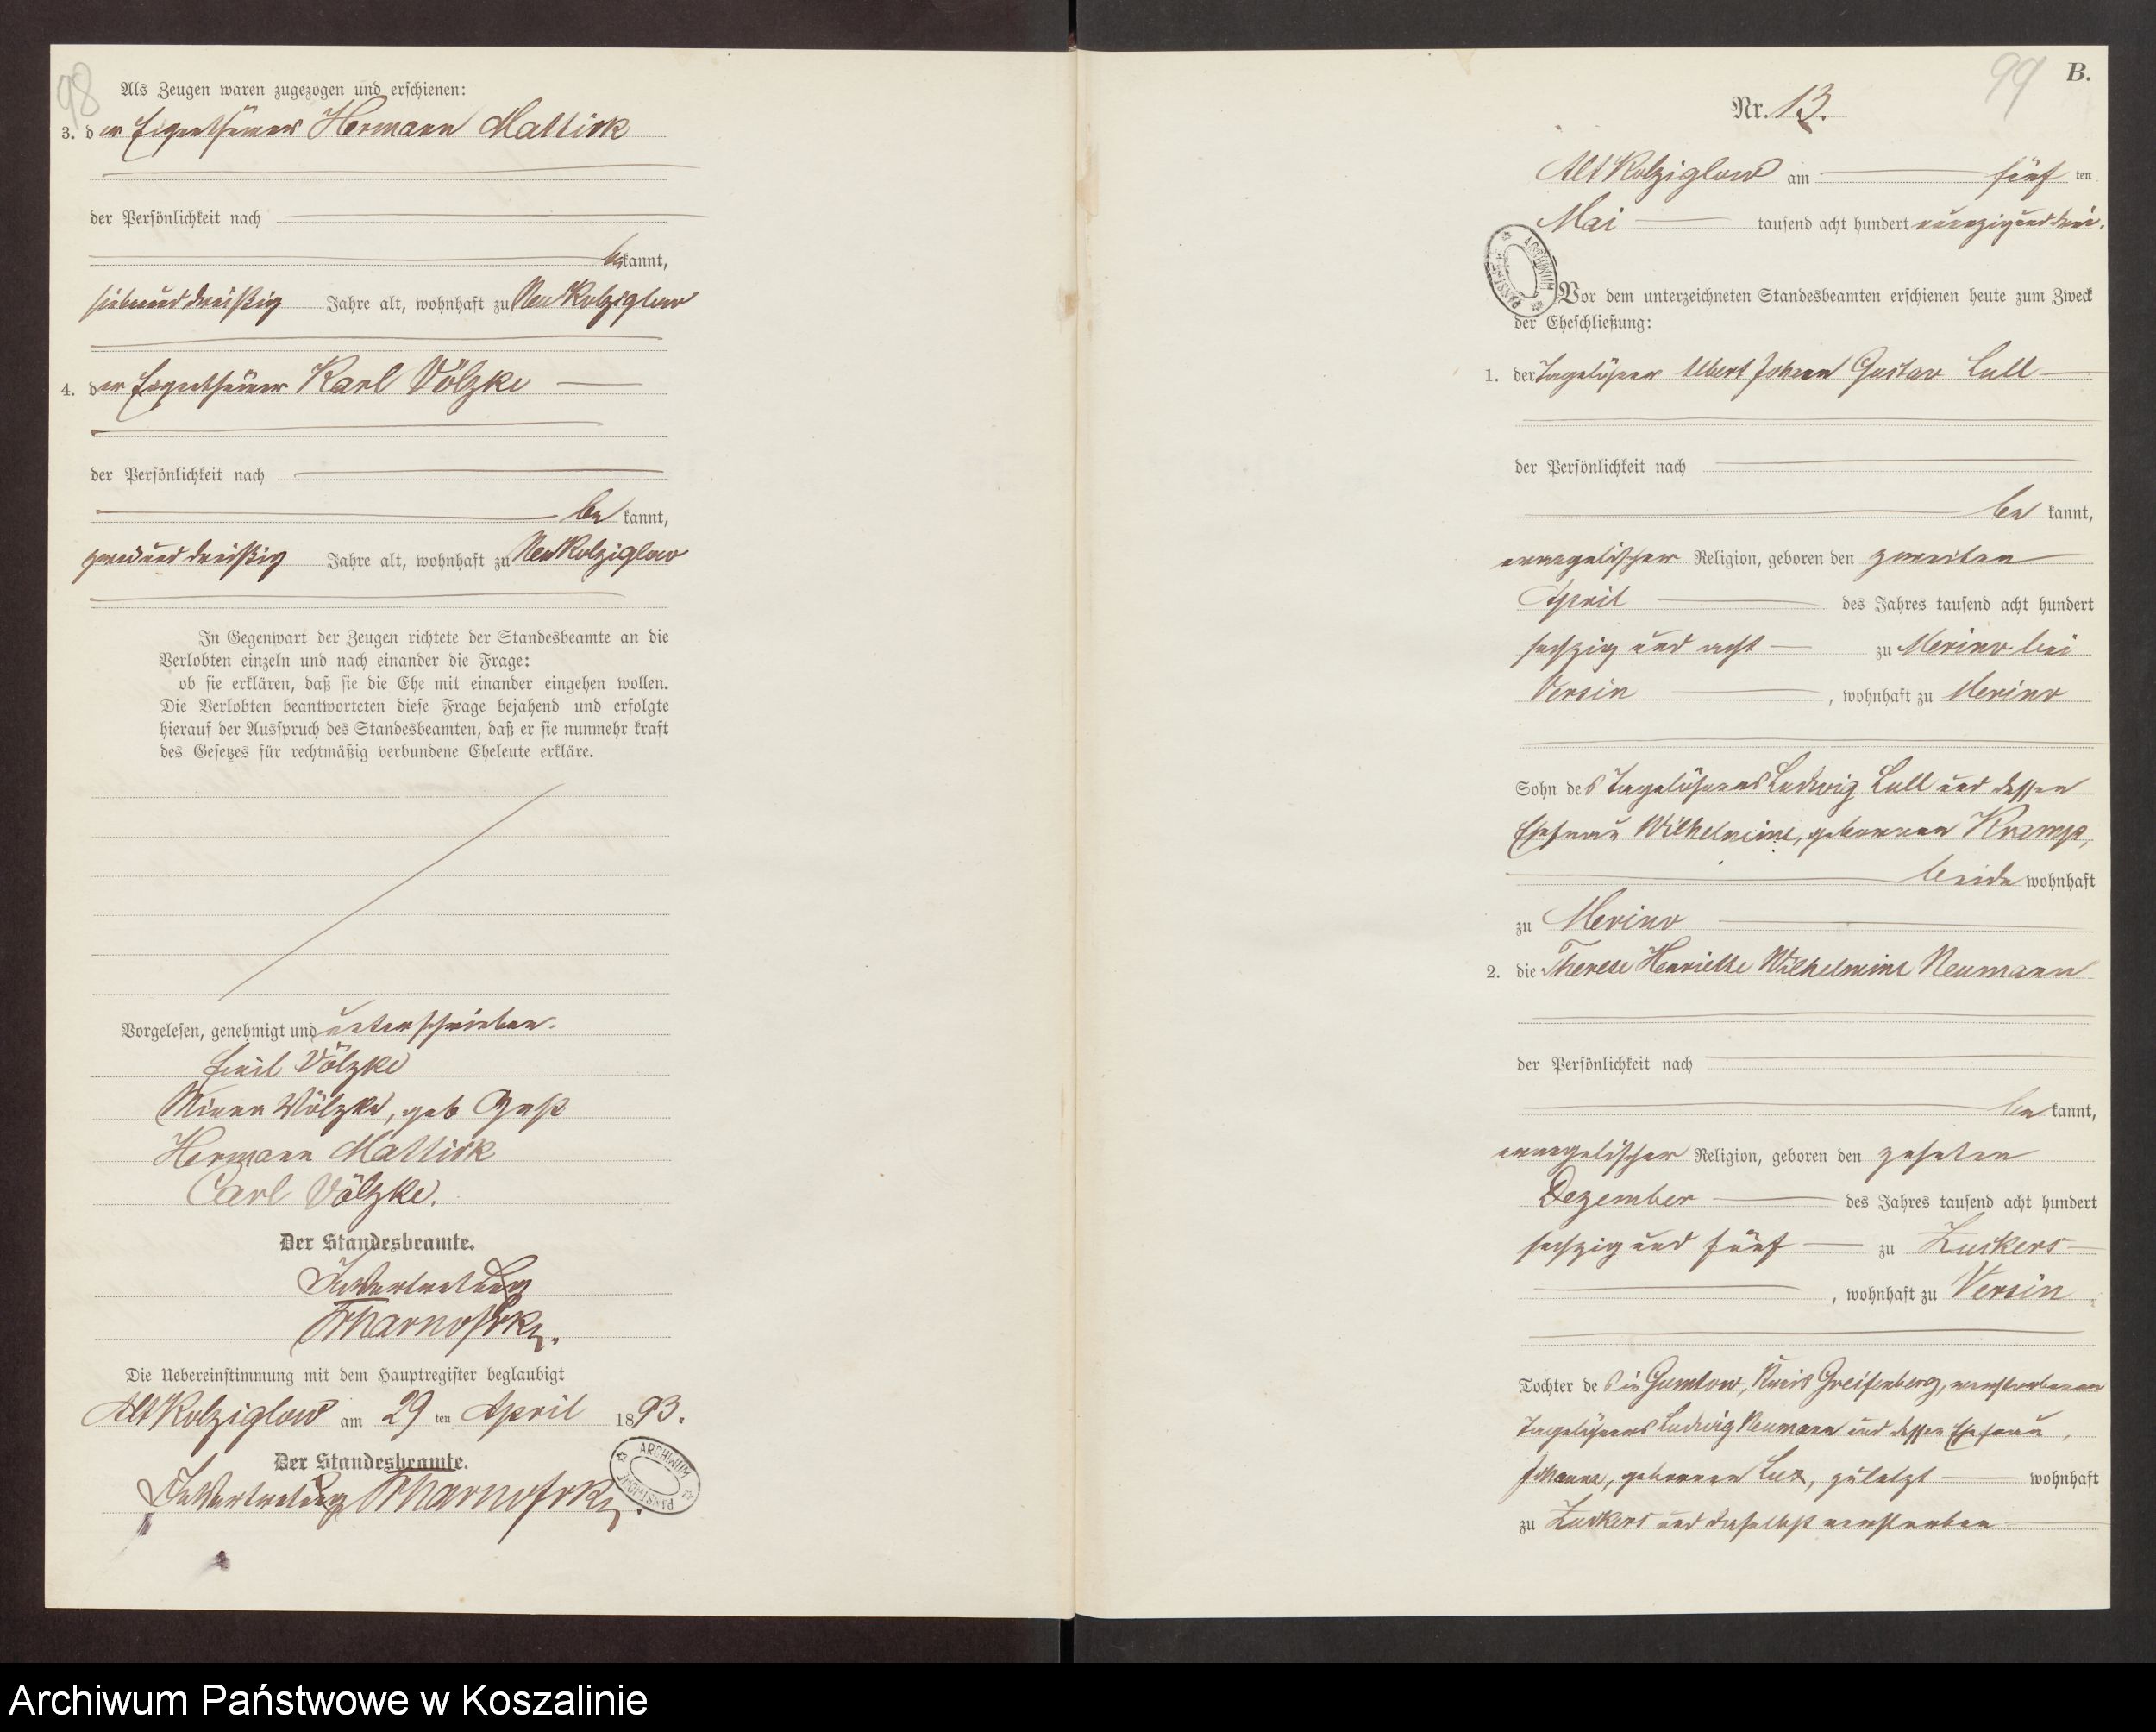 98
Als Zeugen waren zugezogen und erschienen:
3. der Eigenthümer Hermann Mattick
der Persönlichkeit nach
bekannt,
siebenunddreißig Jahre alt, wohnhaft zu Neu Kolziglow
4. der Eigenthümer Karl Völzke
der Persönlichkeit nach
be kannt,
zweiunddreißig Jahre alt, wohnhaft zu Neu Kolziglow
In Gegenwart der Zeugen richtete der Standesbeamte an die
Verlobten einzeln und nach einander die Frage:
ob sie erklären, daß sie die Ehe mit einander eingehen wollen.
Die Verlobten beantworteten diese Frage bejahend und erfolgte
hierauf der Ausspruch des Standesbeamten, daß er sie nunmehr kraft
des Gesetzes für rechtmäßig verbundene Eheleute erkläre.
Vorgelesen, genehmigt und unterschrieben.
Emil Völzke
Minna Völzke, geb
Hermann Mattick
Carl Völzke.
Der Standesbeamte.
In Vertretung
Die Uebereinstimmung mit dem Hauptregister beglaubigt
Alt Kolziglow am 29 ten April 1893.
Der Standesbeamte.
In Vertretung
ARCHIWUM PAŃSTWOWE
99
B.
Nr. 13.
Alt Kolziglow am fünf ten
Mai tausend acht hundert neunzig und drei.
ARCHIWUM PAŃSTWOWE
Vor dem unterzeichneten Standesbeamten erschienen heute zum Zweck
der Eheschließung:
1. der Tagelöhner Albert Johann Gustav Lull
der Persönlichkeit nach
be kannt,
evangelischer Religion, geboren den zweiten
April des Jahres tausend acht hundert
sechzig und acht zu Merino bei
Versin , wohnhaft zu Merino
Sohn des Tagelöhners Ludwig Lull und dessen
Ehefrau Wilhelmine, geborenen Kramp,
beide wohnhaft
zu Merino
2. die Therese Henriette Wilhelmine Neumann
der Persönlichkeit nach
be kannt,
evangelischer Religion, geboren den zehnten
Dezember des Jahres tausend acht hundert
sechzig und fünf zu Zuckers
, wohnhaft zu Versin
Tochter des in Gumtow, Kreis Greifenberg, verstorbenen
Tagelöhners Ludwig Neumann und dessen Ehefrau,
Johanna, geborenen Lux, zuletzt wohnhaft
zu Zuckers und daselbst verstorben
Archiwum Państwowe w Koszalinie